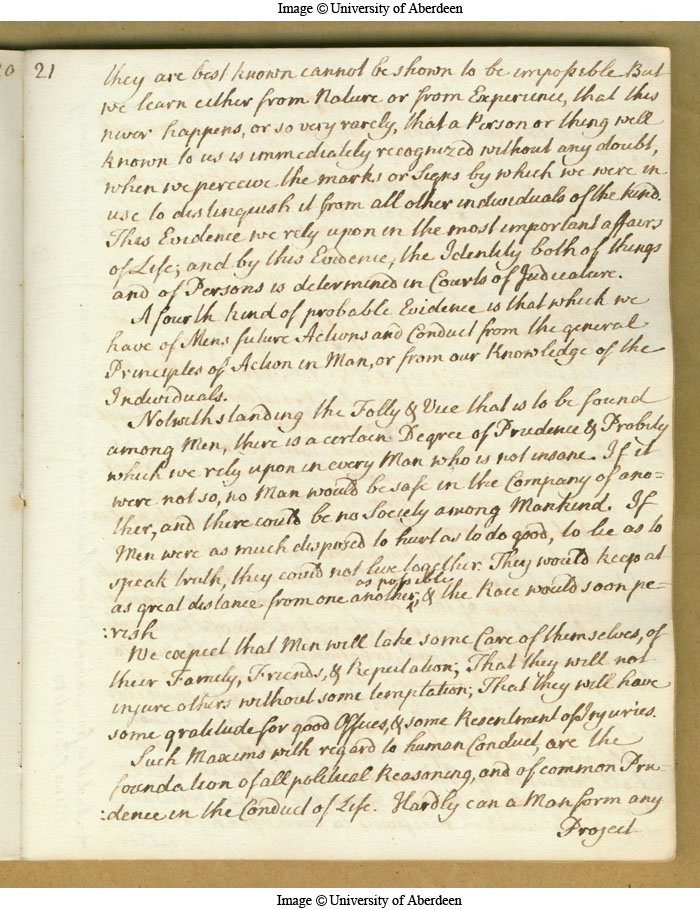 Image © University of Aberdeen
21
they are best known cannot be shown to be impossible But
we learn either from Nature or from Experience, that this
never happens, or so very rarely, that a Person or thing well
known to us is immediately recognized without any doubt,
when we perceive the marks or Signs by which we were in
use to distinguish it from all other individuals of the kind.
This Evidence we rely upon in the most important affairs
of Life; and by this Evidence, the Identity both of things
and of Persons is determined in Courts of Judicature.
A fourth kind of probable Evidence is that which we
have of Mens future Actions and Conduct from the general
Principles of Action in Man, or from our Knowledge of the
Individuals.
Notwithstanding the Folly & Vice that is to be found
among Men, there is a certain Degree of Prudence & Probity
which we rely upon in every Man who is not insane. If it
were not so, no Man would be safe in the Company of ano=
ther, and there could be no Society among Mankind. If
Men were as much disposed to hurt as to do good, to lie as to
speak truth, they could not live together. They would keep at
as great distance from one another, as possible & the Race would soon pe=
:rish
We expect that Men will take some Care of themselves, of
their Family, Friends, & Reputation; That they will not
injure others without some temptation; That they will have
some gratitude for good Offices, & some Resentment of Injuries.
Such Maxims with regard to human Conduct, are the
foundation of all political Reasoning, and of common Pru=
:dence in the Conduct of Life. Hardly can a Man form any
Project
Image © University of Aberdeen